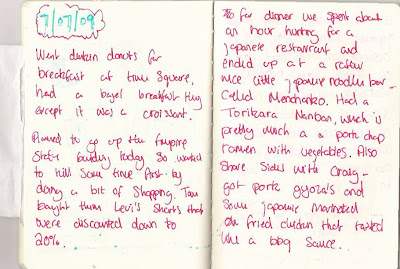 7/07/09
Went dunkin donuts for
breakfast at time square,
had a bagel breakfast thing
except it was a croissant.
Planned to go up the Empire
State building today so wanted
to kill some time first by
doing a bit of shopping. Tom
bought them Levi's shorts that
were discounted down to
20%.
So for dinner we spent about
an hour hunting for a
japanese restaurant and
ended up at a rather
nice little japanese noodle bar
called Menchanko. Had a
Torikara Nanban, which is
pretty much a a pork chop
ramen with vegetables. Also
share sides with Craig -
got pork gyoza's and
some japanese marinated
fried chicken that tasted
like a bbq sauce.